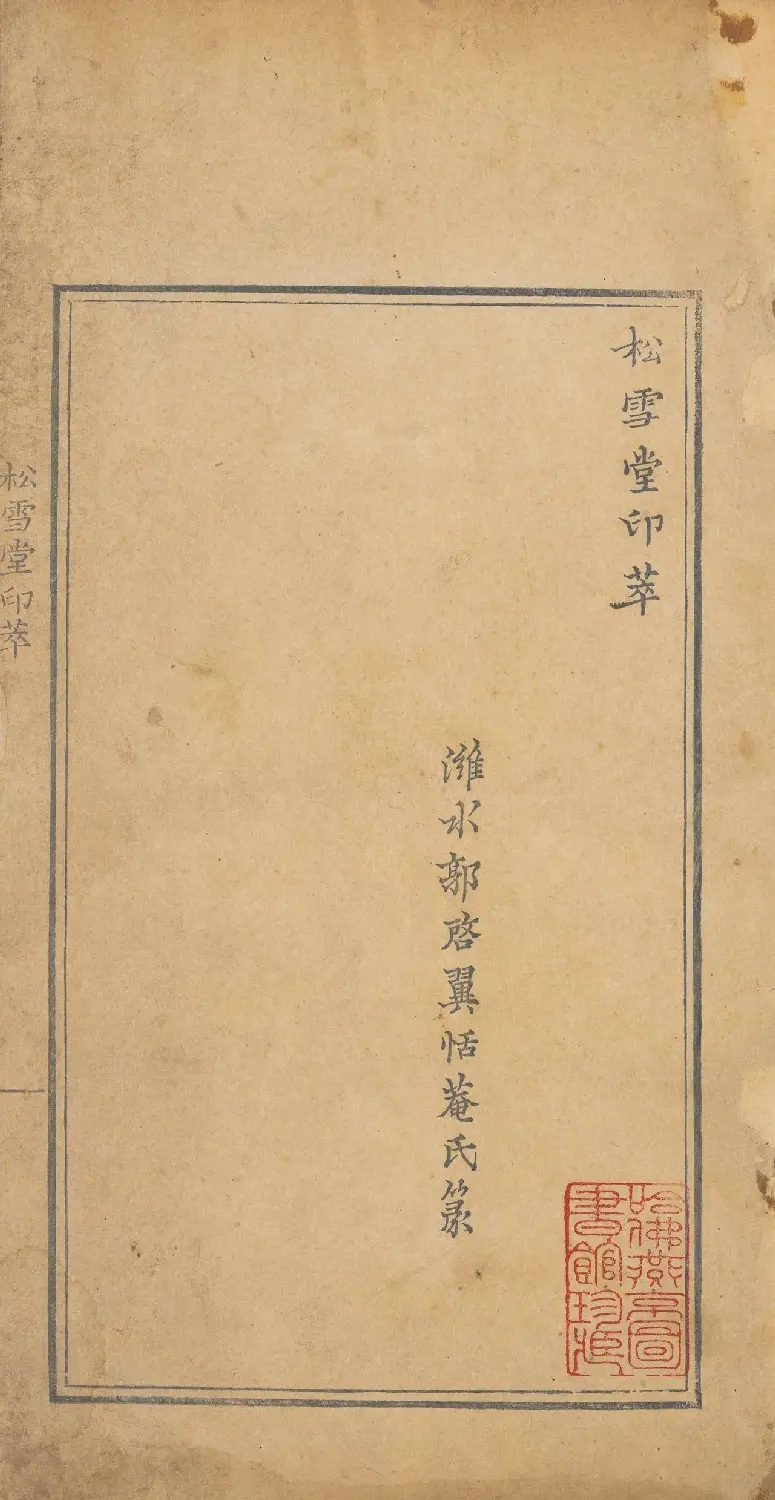 松雪堂印萃
濰水郭啓翼恬菴氏篆
哈佛燕京圖
書館珍藏
松雪堂印萃